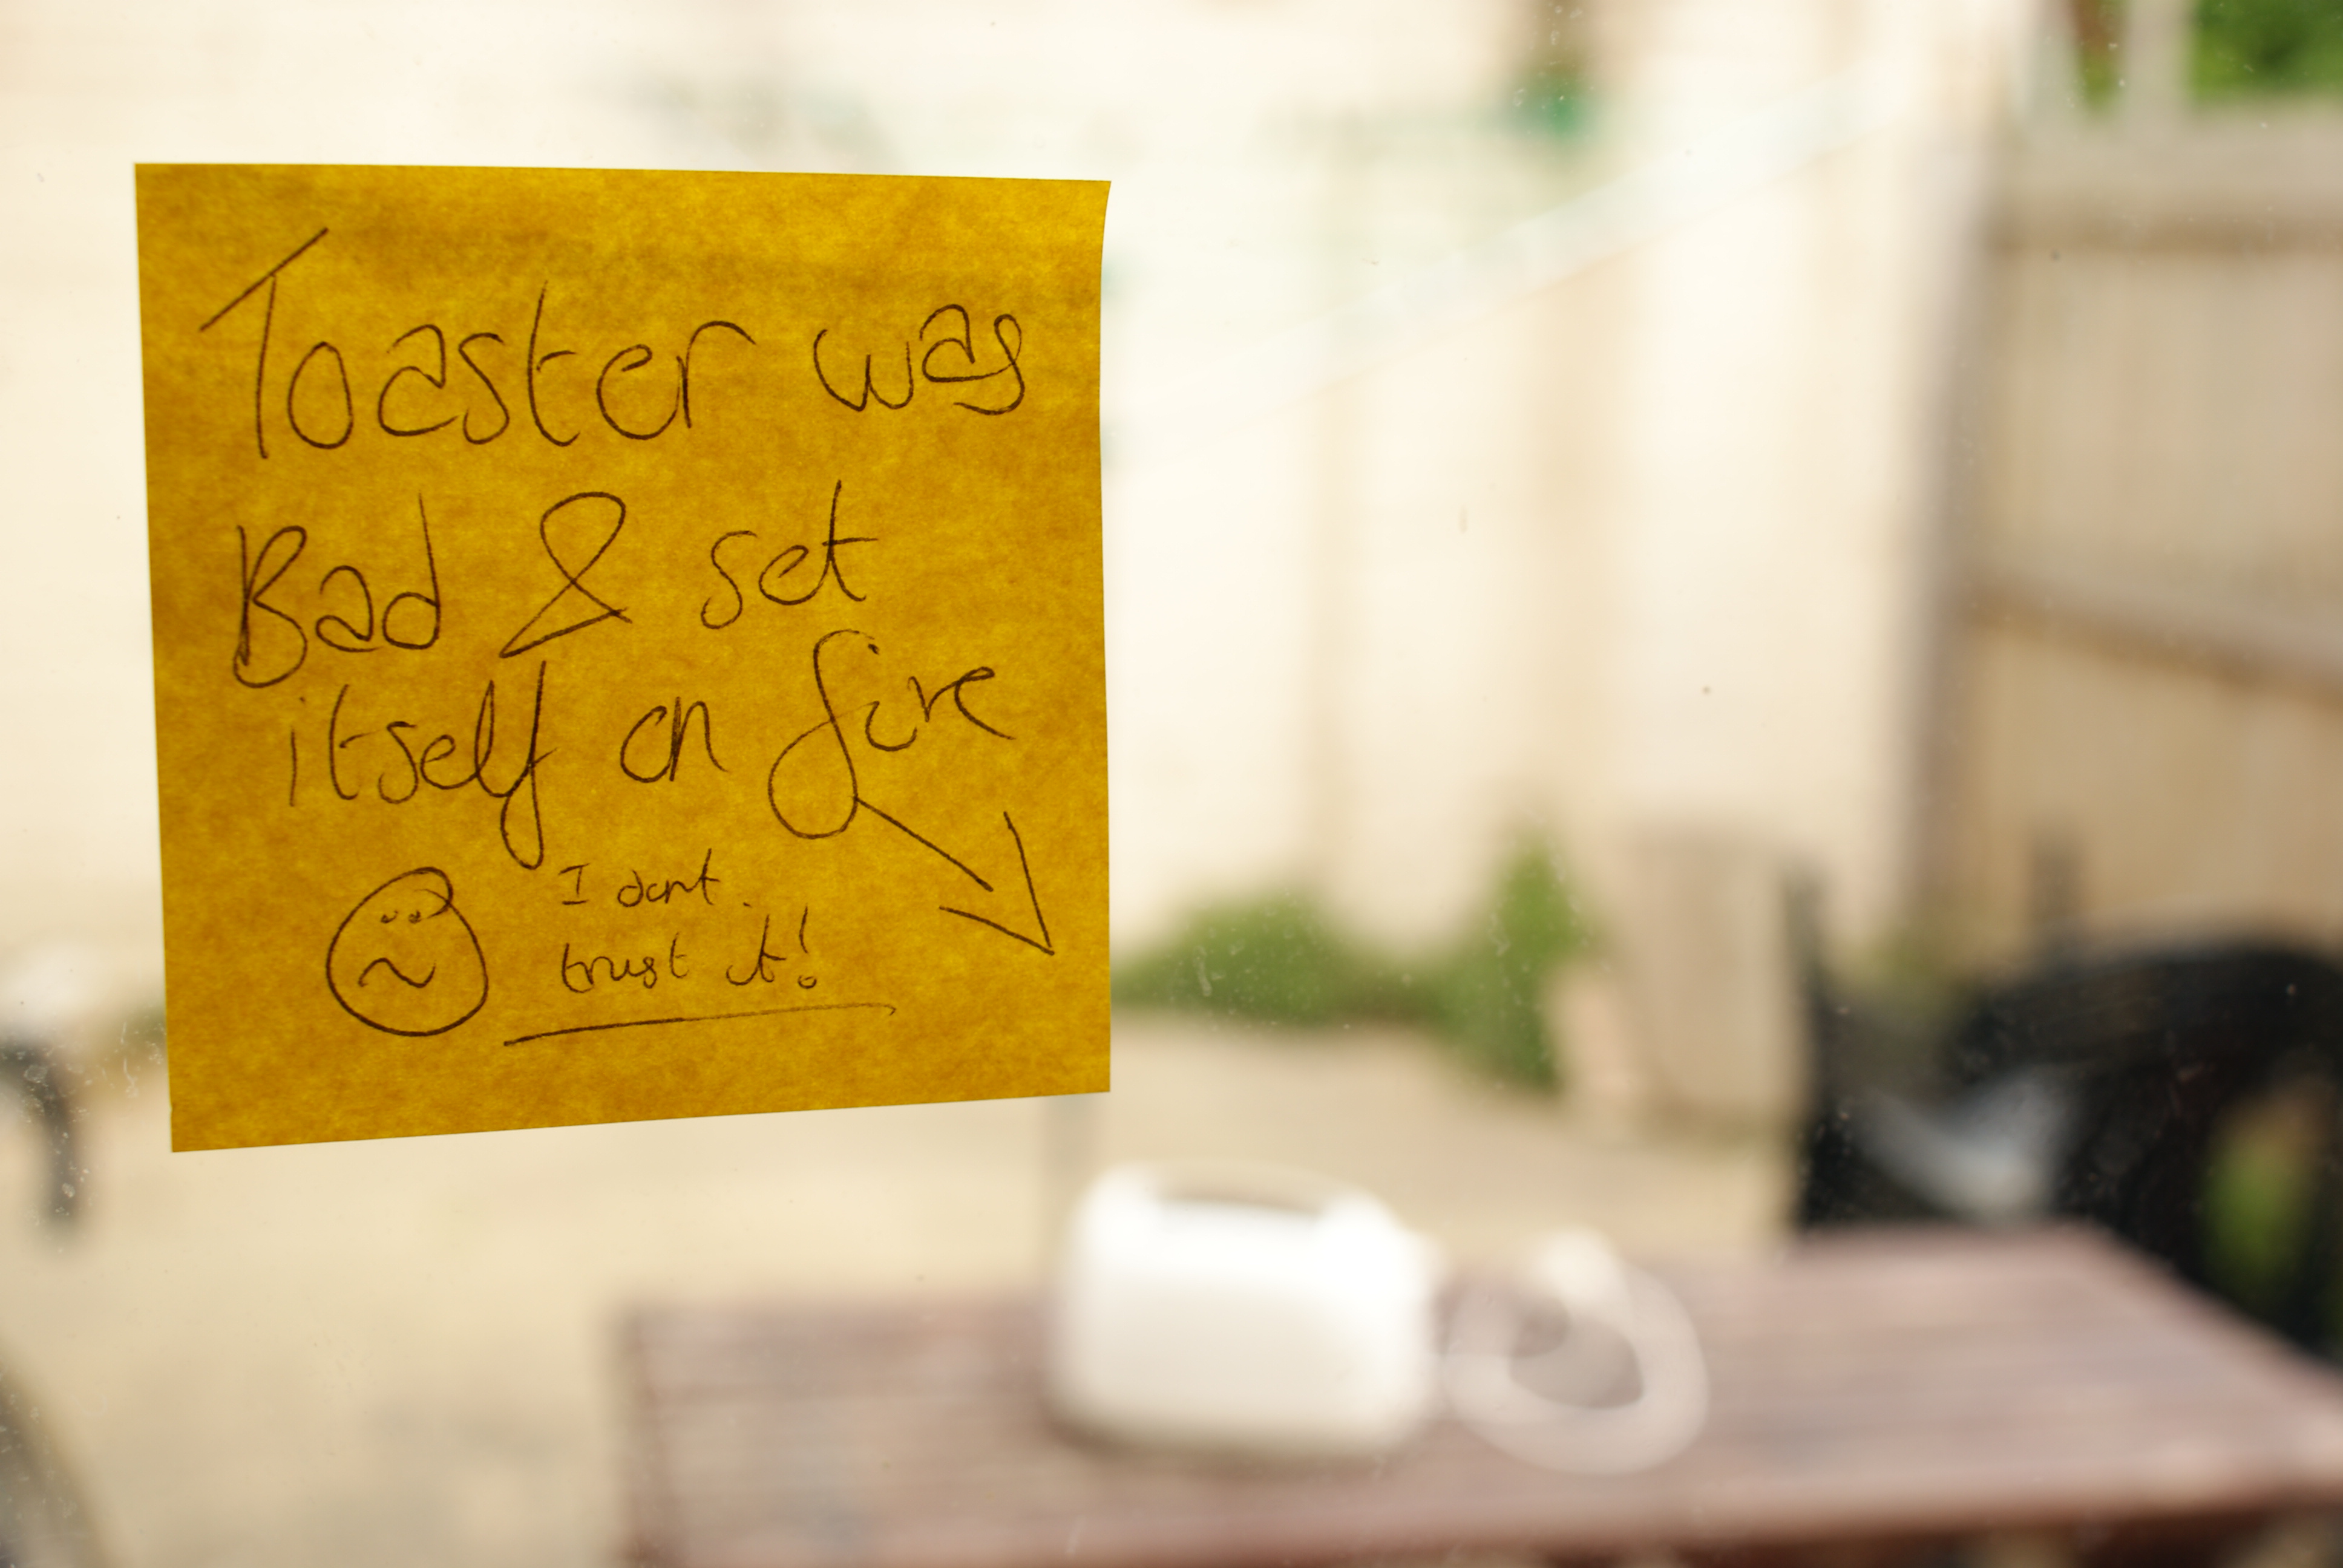 Toaster was
Bad & set
itself on fire
I dont
trust it!